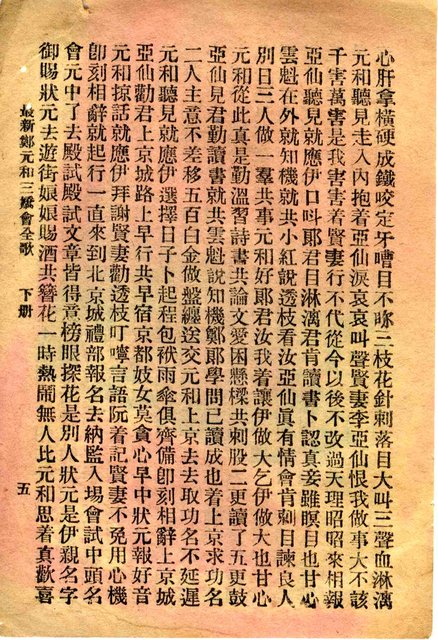 心肝拿橫硬成鐵咬定牙嘈目不眵三枝花針刺落目大叫三聲血淋漓
元和聽見走入內抱着亞仙淚哀哀叫聲賢妻李亞仙恨我做事大不該
千害萬害是我害害着賢妻行不代從今以後不改過天理昭昭來相報
亞仙聽見就應伊口呌郎君目淋漓君肯讀書卜認真妾雖瞑目也甘心
雲魁在外就知機就共小紅說透枝看汝亞仙眞有情會肯刺目諫良人
別日三人做一羣共事元和好郎君汝我着讓伊做大乞伊做大也甘心
元和從此真是勤溫習詩書共論文愛困懸樑共刺股二更讀了五更鼓
亞仙見君勤讀書就共雲魁說知機鄭郎學問已讀成也着上京求功名
二人主意不差移五百白金做盤纏送交元和上京去去取功名不延遲
元和聽見就應伊選擇日子卜起程包袱雨傘俱齊備卽刻相辭上京城
亞仙勸君上京城路上早行共早宿京都妓女莫貪心早中狀元報好音
元和掠話就應伊拜謝賢妻勸透枝叮嚀言語阮着記賢妻不免用心機
卽刻相辭就起行一直來到北京城禮部報名去納監入塲會試中頭名
會元中了去殿試殿試文章皆得意榜眼探花是別人狀元是伊親名字
御賜狀元去遊街娘娘賜酒共簪花一時熱鬧無人比元和思着真歡喜
最新鄭元和三嬌會全歌　下册　五